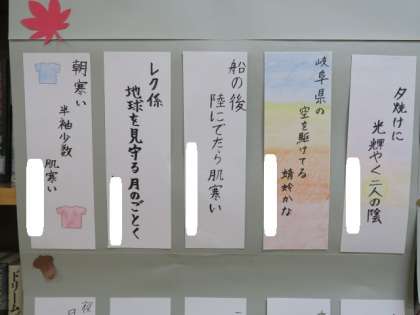 夕焼けに
光輝やく二人の陰
岐阜県の
空を駆けてる
蜻蛉かな
船の後
陸にでたら肌寒い
レク係
地球を見守る月のごとく
朝寒い
半袖少数
肌寒い
ドリーム